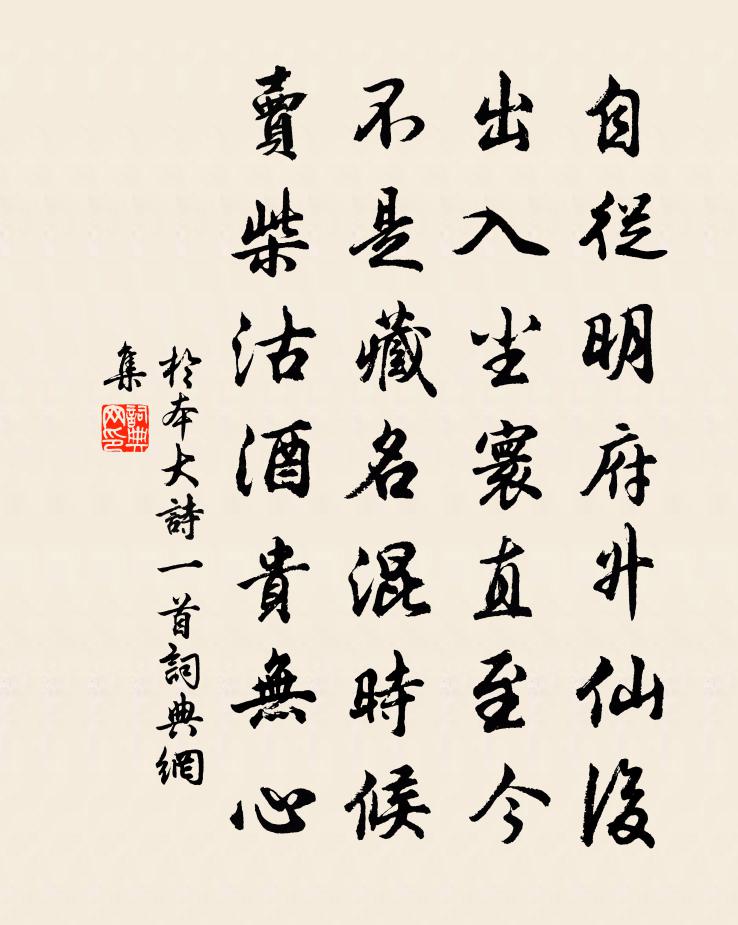 自從明府升仙後
出入尘寰直至今
不是藏名混時候
賣柴沽酒貴無心
於本大詩一首詞典網
集
詞典网印